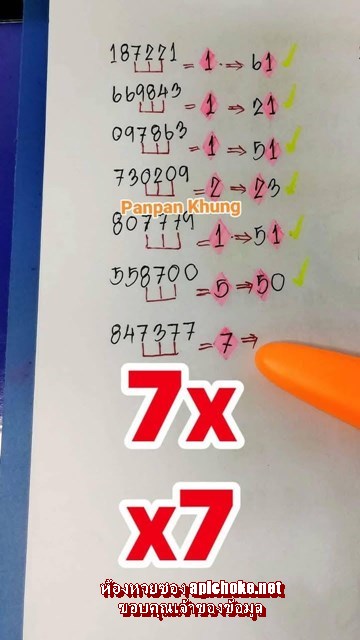 187221 = 1 → 61 ✓
669843 = 1 → 21 ✓
097863 = 1 → 51 ✓
730209 = 2 → 23 ✓
Panpan Khung
807779 = 1 → 51 ✓
558700 = 5 → 50 ✓
847377 = 7 ⇒
7x
x7
ห้องทวยซอง apichoke.net
ขอบคุณเจ้าของข้อมูล